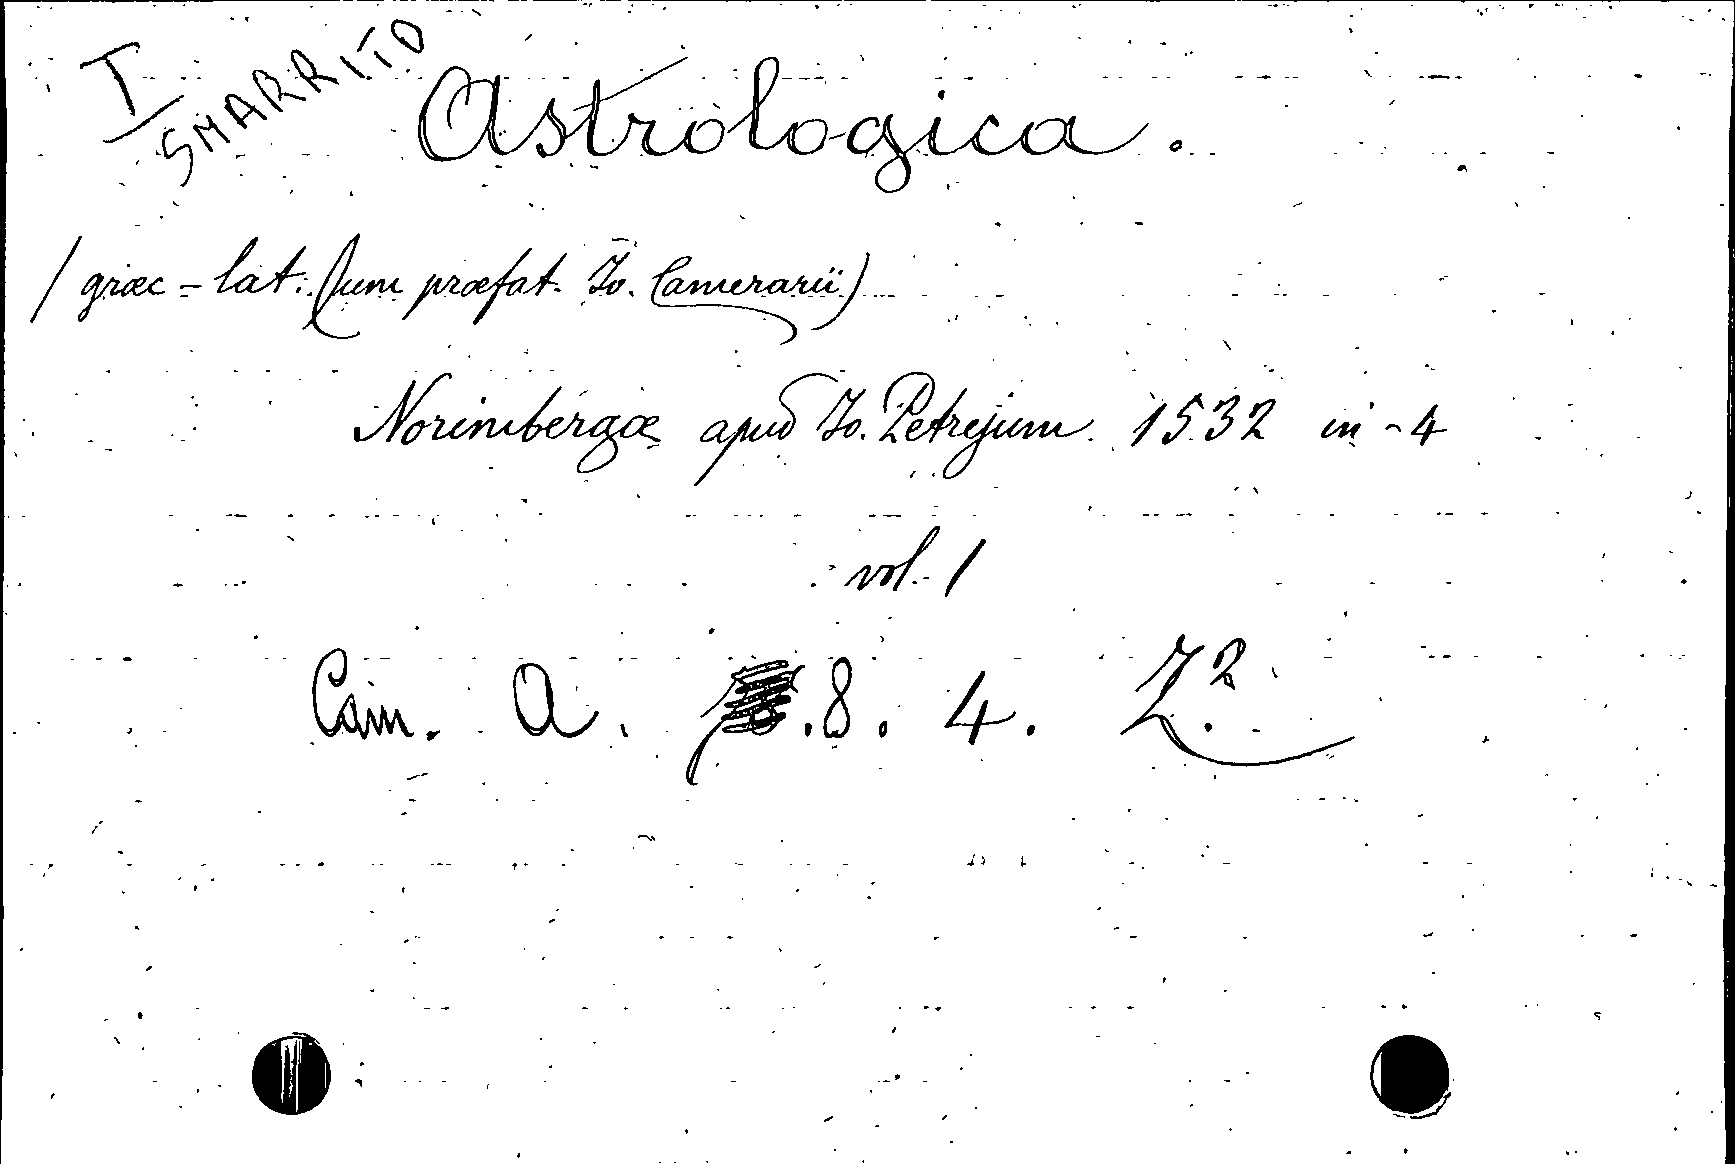 I
SMARRITO
Astrologica.
/ græc-lat. (cum præfat. Io. Camerarii)
Norimbergæ apud Io. Petrejum 1532 in-4
vol. 1
Cam. A. .8. 4. Z.2